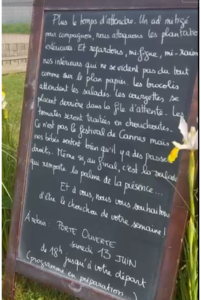 Plus le temps d'attendre. Un œil mitigé
pour compagnon, nous attaquons les plantations
extérieures. Et regardons, mi-figue, mi-raisin
nos intérieurs qui ne se vident pas du tout
comme sur le plan papier. Les brocolis
attendant les salades. Les courgettes, se
placent derrière dans la file d'attente. Les
tomates seront traitées en
Ce n'est pas le festival de Cannes mais
on voit bien qu'il y a des passe-
droits. Même si, au final, c'est la salade
qui remporte la palme de la présence...
Et à vous, nous vous souhaitons
d'être le cherchon de votre semaine !
A venir : PORTE OUVERTE
samedi 13 JUIN
de 18h jusqu'à votre départ
(programme en préparation)